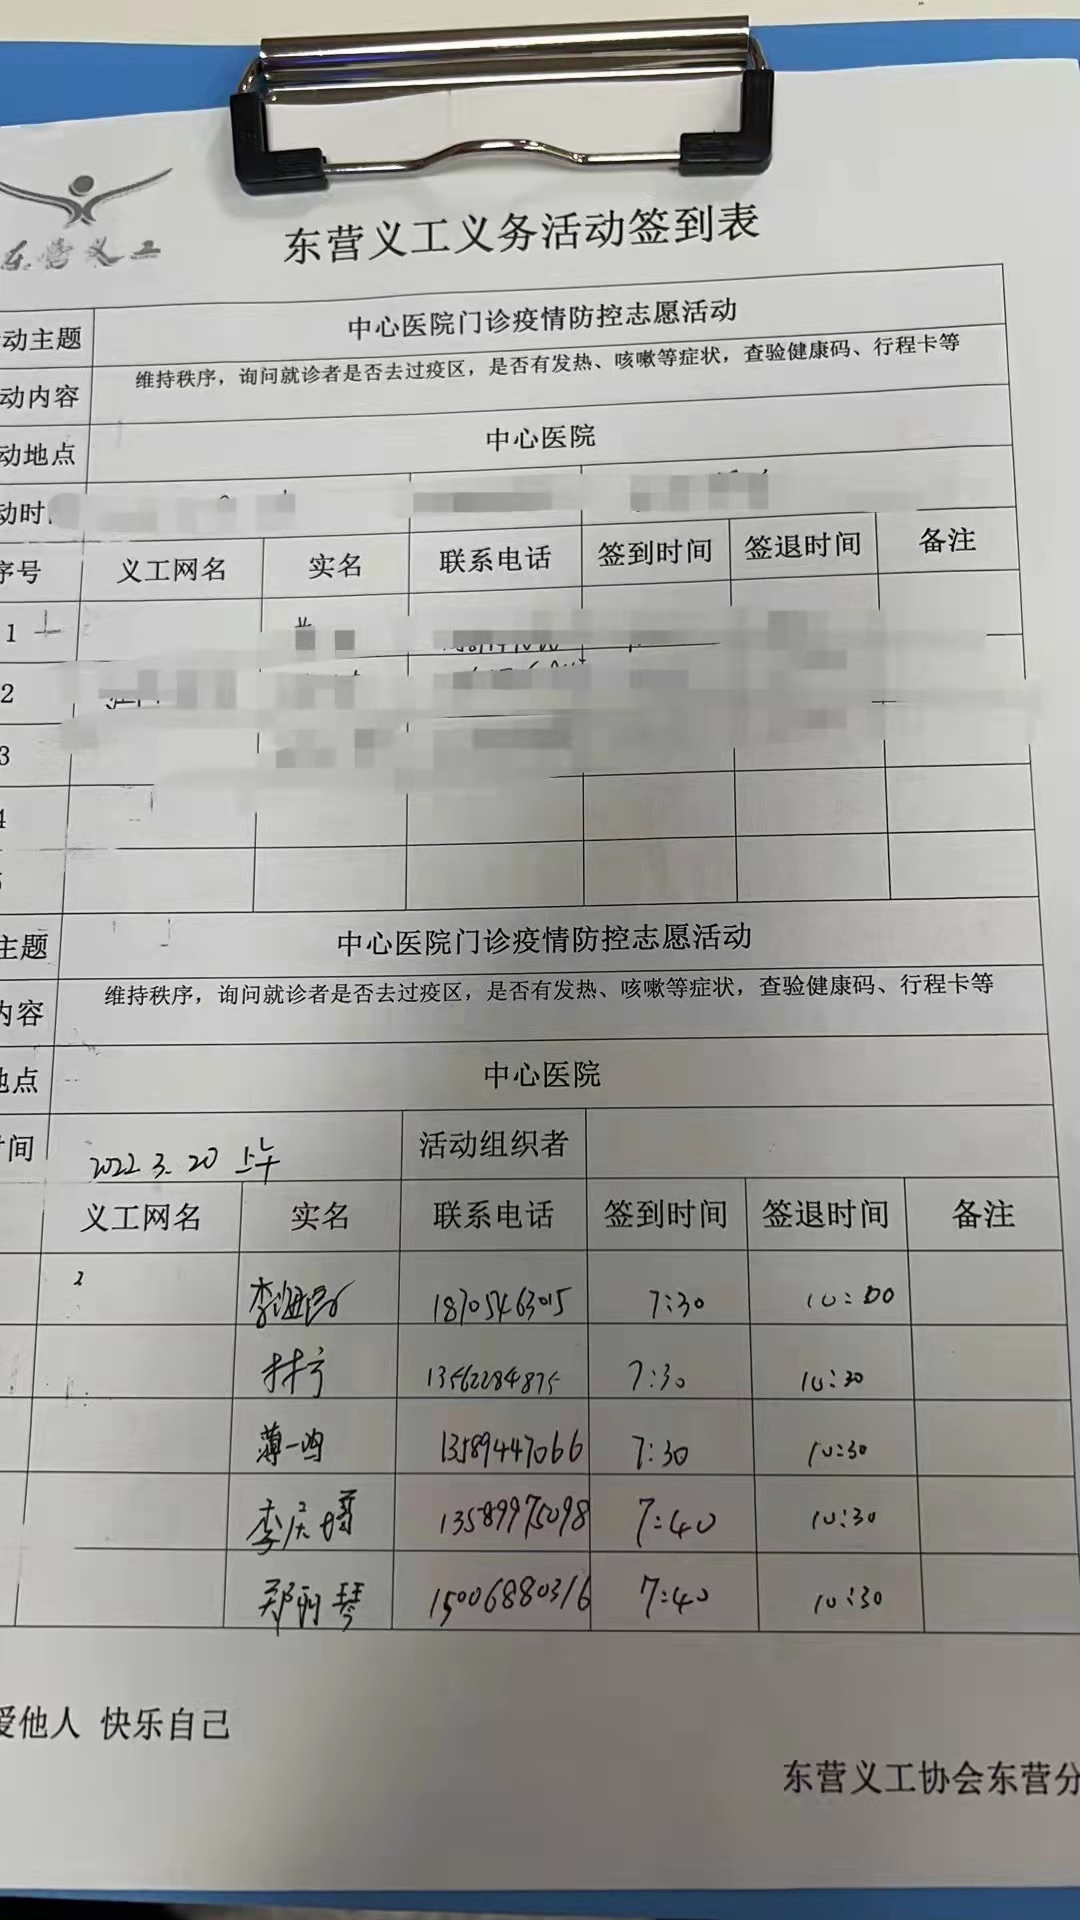 东营义工
东营义工义务活动签到表
动主题 中心医院门诊疫情防控志愿活动
动内容 维持秩序，询问就诊者是否去过疫区，是否有发热、咳嗽等症状，查验健康码、行程卡等
动地点 中心医院
动时
序号 义工网名 实名 联系电话 签到时间 签退时间 备注
1
2
3
4
5
主题 中心医院门诊疫情防控志愿活动
内容 维持秩序，询问就诊者是否去过疫区，是否有发热、咳嗽等症状，查验健康码、行程卡等
地点 中心医院
时间 2022.3.20 上午 活动组织者
义工网名 实名 联系电话 签到时间 签退时间 备注
李海 18705463015 7:30 10:00
林宁 13562284875 7:30 10:30
薄一鸣 13589447066 7:30 10:30
李庆 13589975098 7:40 10:30
郑丽琴 15006880316 7:40 10:30
爱他人 快乐自己
东营义工协会东营分